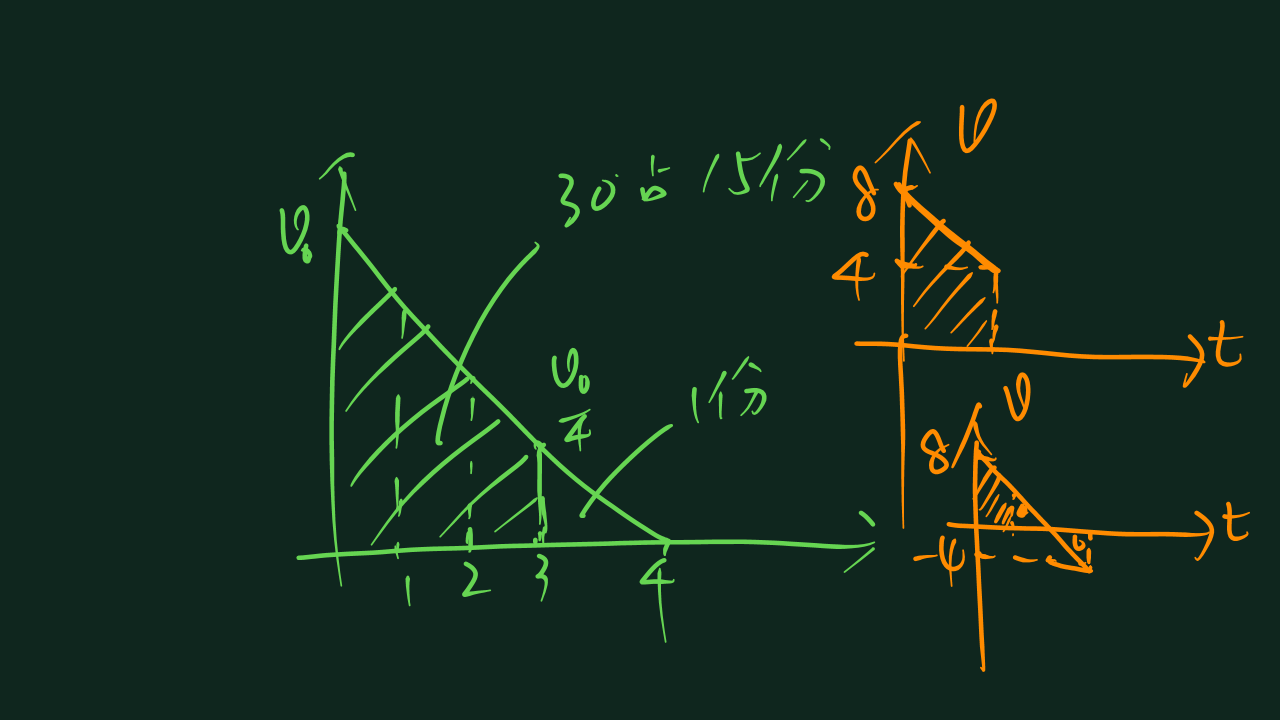 v₀
30占15份
v₀/4
1份
1 2 3 4
v
8
4
t
v
8
-4
t